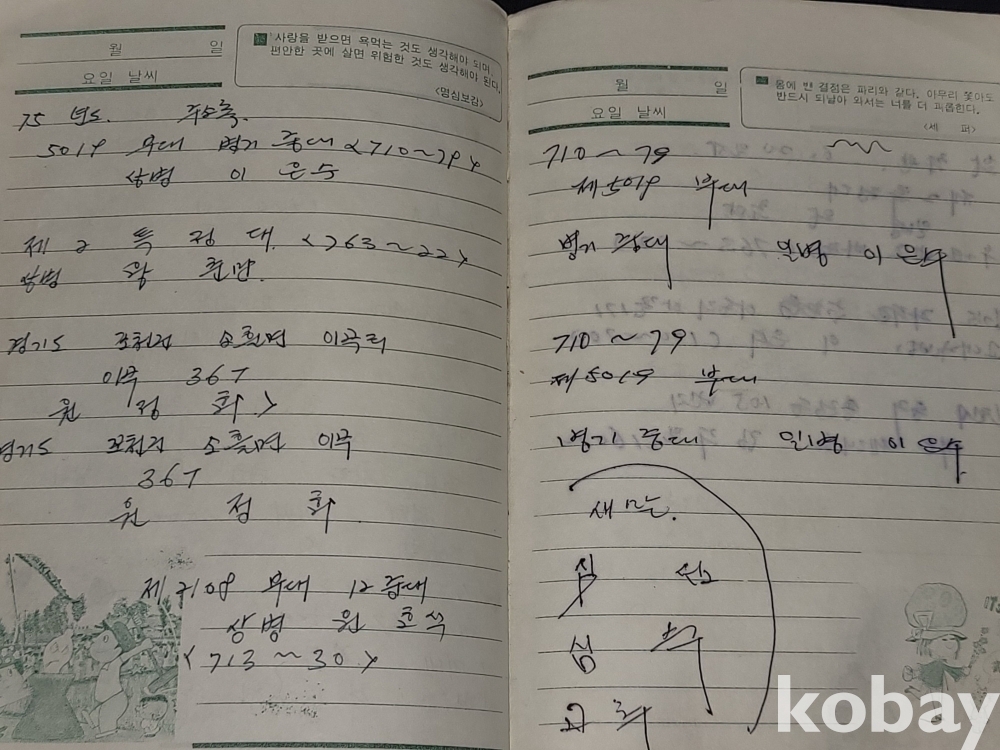 월 일
요일 날씨
사랑을 받으면 욕먹는 것도 생각해야 되며,
편안한 곳에 살면 위험한 것도 생각해야 된다.
<명심보감>
75 년도. 주소록.
5019 부대 병기 중대 <710~79>
상병 이 은수
제 2 특 경 대. <763~22>
상병 황
경기도 포천군 소흘면 이곡리
이구 367
원 정 희>
경기도 포천군 소흘면 이구
367
원 정 희
제 7108 부대 12 중대
상병 원 호 석
<713~30>
월 일
요일 날씨
몸에 밴 결점은 파리와 같다. 아무리 쫓아도
반드시 되날아 와서는 너를 더 괴롭힌다.
<세 퍼>
710~79
제 5019 부대
병기 중대 일병 이 은수
710~79
제 5019 부대
병기 중대 일병 이 은수
새마을.
심
kobay